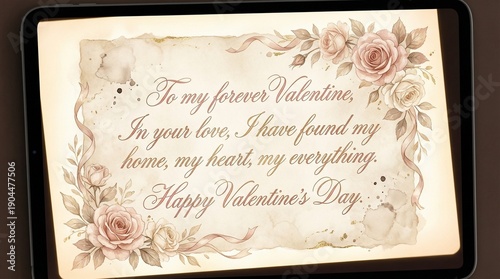 To my forever Valentine,
In your love, I have found my
home, my heart, my everything.
Happy Valentine's Day.
Adobe Stock | 1904477506